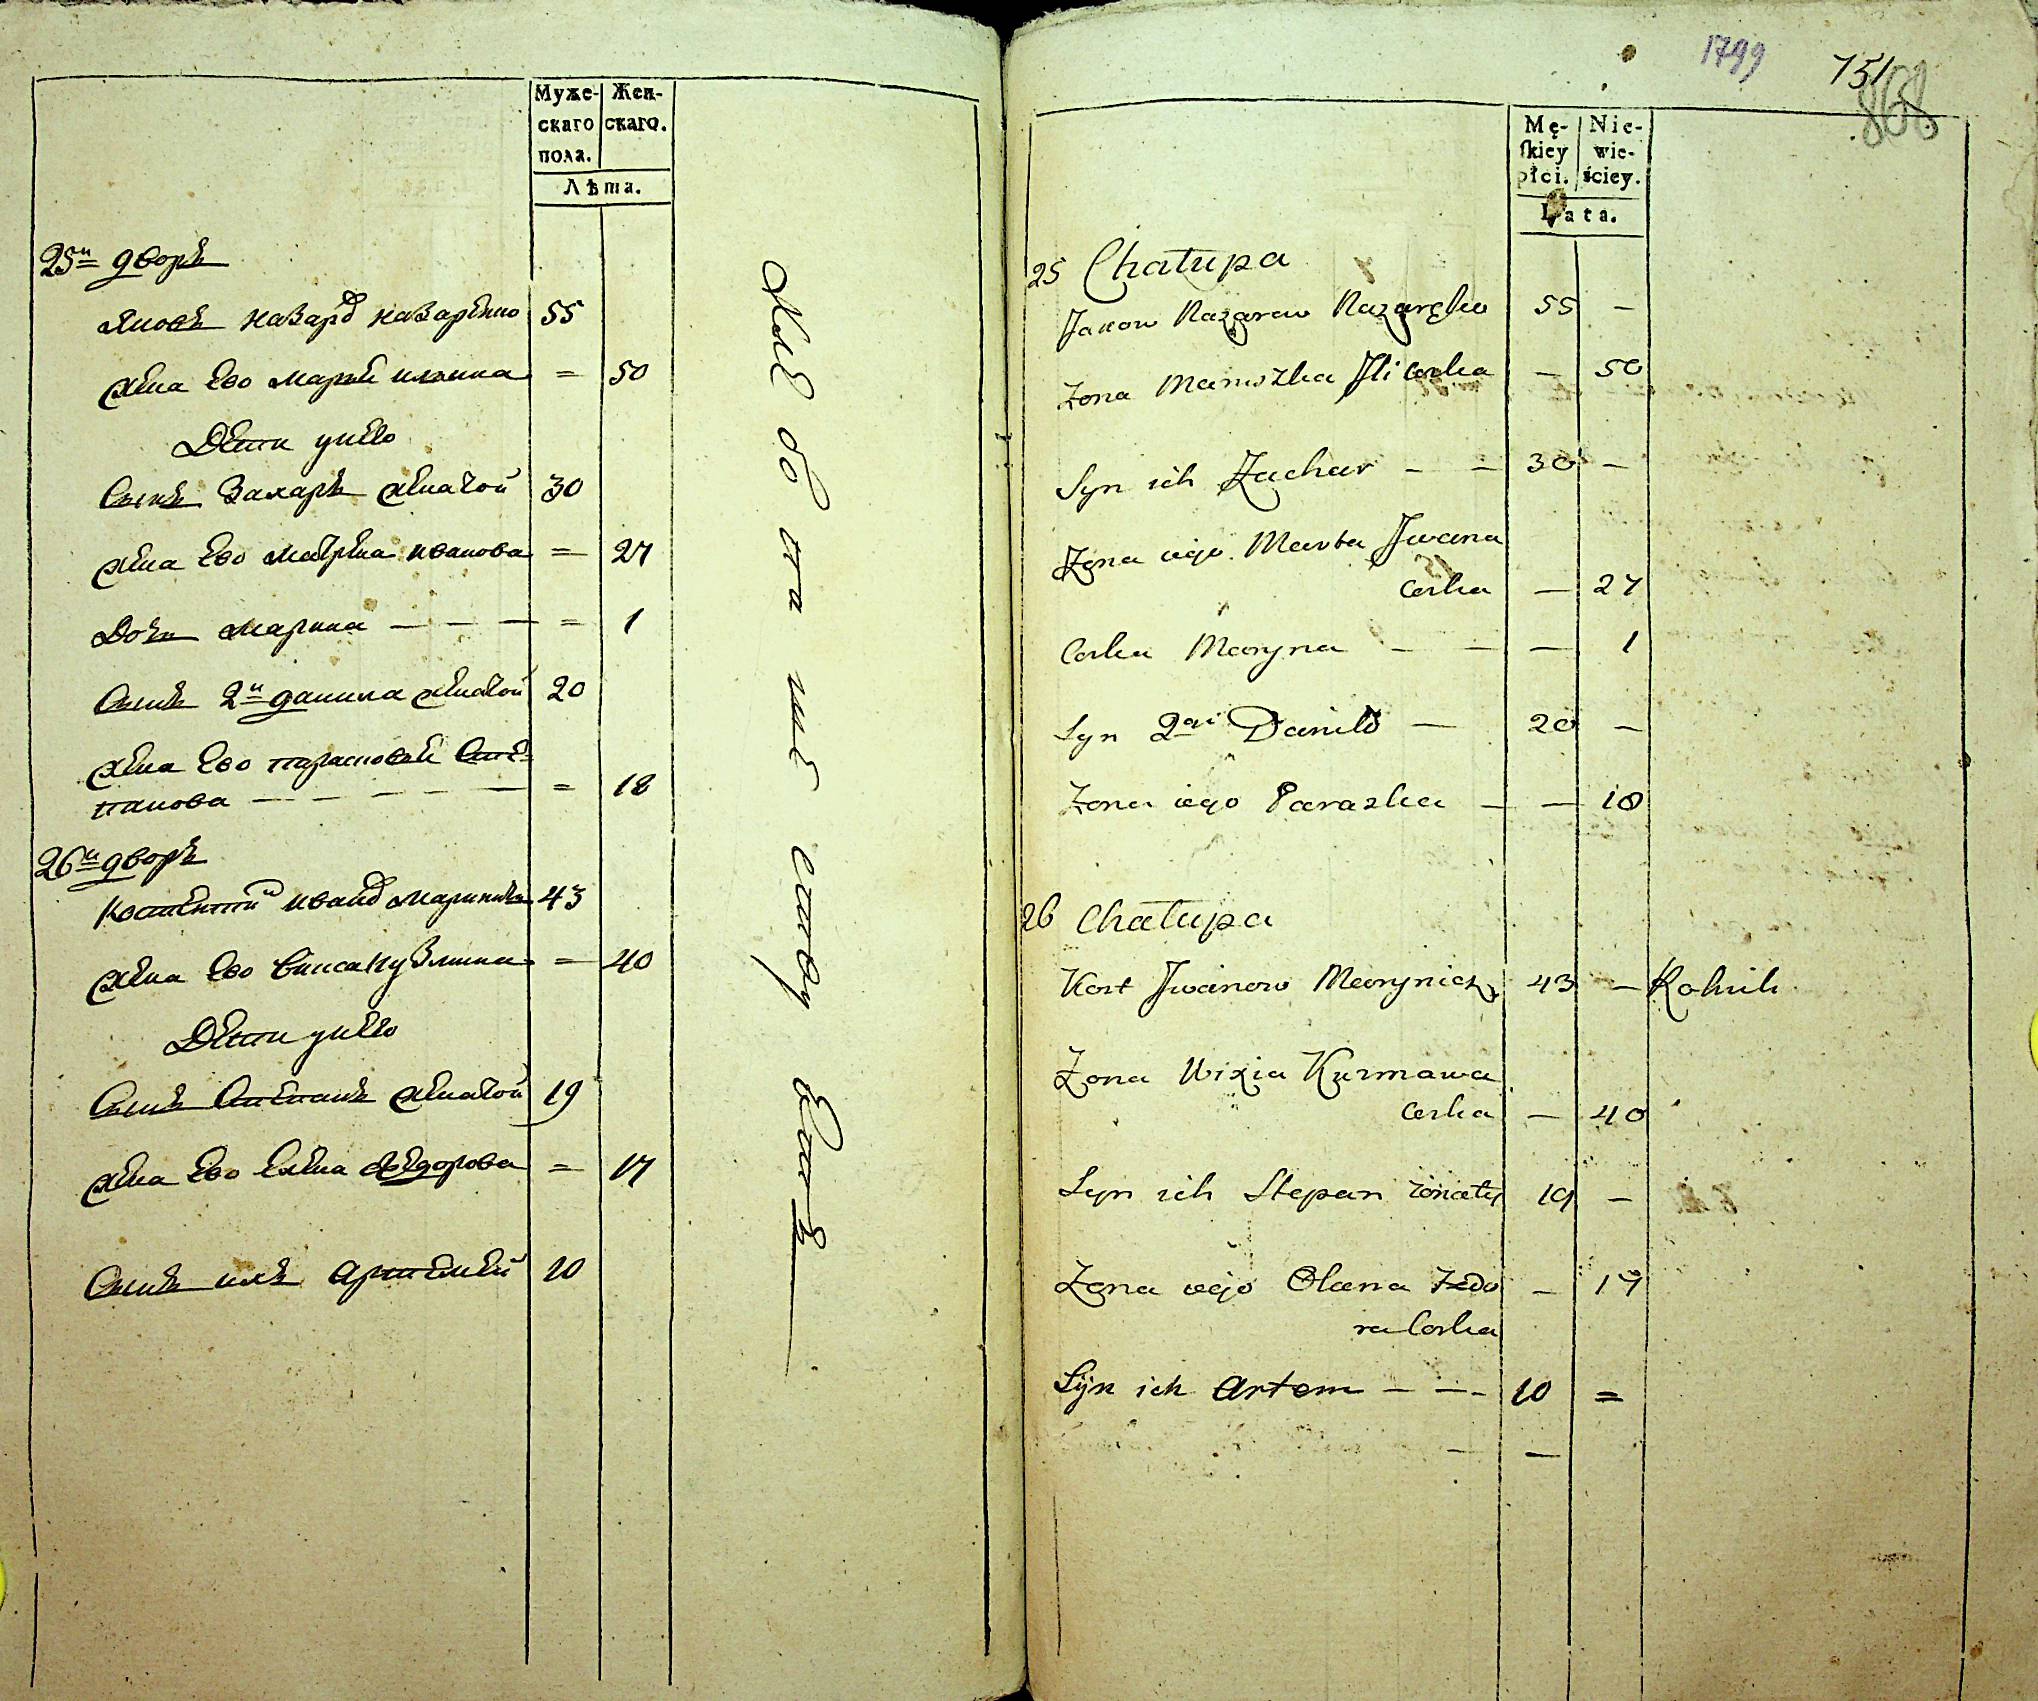 Муже-
скаго
пола.
Жен-
скаго.
Лѣта.
25й дворъ
Яковъ Назаров Назаренко 55
жена ево Марья Ильина = 50
Дети у него
Сынъ Захаръ женатой 30
жена ево Матрена Иванова = 27
Дочь Марина — — — = 1
Сынъ 2й Данила женатой 20
жена ево Парасковья Сте-
панова — — — — — = 18
26й дворъ
Костентин Иванов Маринич 43
жена ево Кузмина = 40
Дети у него
Сынъ Степанъ женатой 19
жена ево Елена Федорова = 17
Сынъ ихъ Артемей 10
1799
751
868
Mę-
skiey
płci.
Nie-
wie-
ściey.
Lata.
25 Chałupa
Jakow Nazarow Nazaręko 55 —
Żona Maruszka Ili Corka — 50
Syn ich Zachar — — 30 —
Żona iego Marta Iwana
Corka — 27
Corka Maryna — — — 1
Syn 2gi Daniło — 20 —
Żona iego Paraska — — 18
26 Chałupa
Kost Iwanow Marynicz 43 — Rolnik
Żona Wixia Kuzmawa
Corka — 40
Syn ich Stepan żonaty 19 —
Żona iego Olena Fedo — 17
ra Corka
Syn ich Artem — — - 10 =
— —